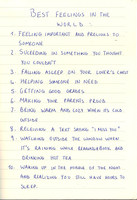 BEST FEELINGS IN THE
WORLD
1. FEELING IMPORTANT AND PRECIOUS TO
SOMEONE
2. SUCCEEDING IN SOMETHING YOU THOUGHT
YOU COULDN'T
3. FALLING ASLEEP ON YOUR LOVER'S CHEST
4. HELPING SOMEONE IN NEED
5. GETTING GOOD GRADES
6. MAKING YOUR PARENTS PROUD
7. BEING WARM AND COZY WHEN ITS COLD
OUTSIDE
8. RECEIVING A TEXT SAYING "I MISS YOU"
9. WATCHING OUTSIDE THE WINDOW WHEN
IT'S RAINING WHILE REMEMBERING AND
DRINKING HOT TEA
10. WAKING UP IN THE MIDDLE OF THE NIGHT
AND REALIZING YOU STILL HAVE HOURS TO
SLEEP.